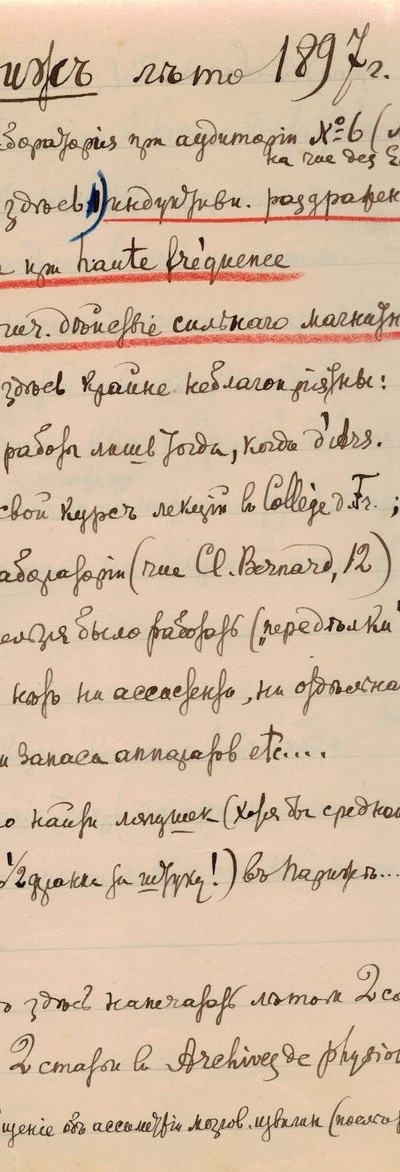 лѣто 1897 г.
при аудиторiи № 6 (
на rue des
здѣсь 1) индуктивн. раздражен
при haute fréquence
дѣйствiе сильнаго магнитн
здѣсь крайне неблагопрiятны:
работы лишь тогда, когда d'Ars.
свой курсъ лекцiй въ Collège d. Fr. ;
(rue Cl. Bernard, 12)
было работать („передѣлки"
нѣтъ ни ассистента, ни отдѣльна
запаса аппаратов etc....
найти лягушек (хотя бы средно
1/2 франка за штуку!) въ Парижѣ...
здѣсь напечатать лѣтом 2 с
2 статьи въ Archives de physio
объ ассиметрiи мозгов. извилин